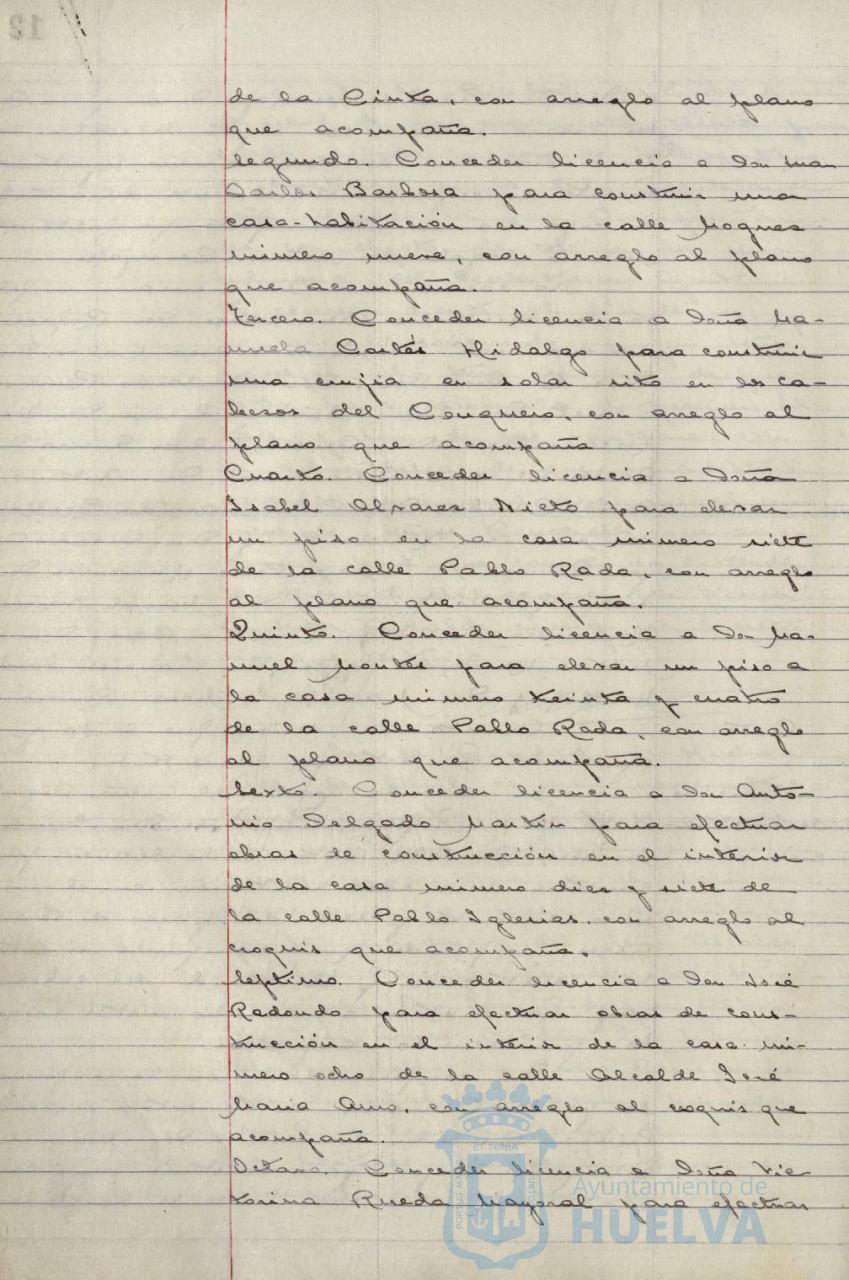 de la Cinta, con arreglo al plano
que acompaña.
Segundo. Conceder licencia a don Juan
Carlos Barbosa para construir una
casa-habitación en la calle Moguer
número nueve, con arreglo al plano
que acompaña.
Tercero. Conceder licencia a doña Ma-
nuela Cortés Hidalgo para construir
una en solar sito en los ca-
bezos del Conquero, con arreglo al
plano que acompaña
Cuarto. Conceder licencia a doña
Isabel Alvarez Nieto para elevar
un piso en la casa número siete
de la calle Pablo Rada, con arreglo
al plano que acompaña.
Quinto. Conceder licencia a don Ma-
nuel Montes para elevar un piso a
la casa número treinta y cuatro
de la calle Pablo Rada, con arreglo
al plano que acompaña.
Sexto. Conceder licencia a don Anto-
nio Delgado Martín para efectuar
obras de construcción en el interior
de la casa número diez y siete de
la calle Pablo Iglesias, con arreglo al
croquis que acompaña.
Septimo. Conceder licencia a don José
Redondo para efectuar obras de cons-
trucción en el interior de la casa nú-
mero ocho de la calle Alcalde José
Maria Amo, con arreglo al croquis que
acompaña.
Octavo. Conceder licencia a doña Vic-
torina Rueda Mayoral para efectuar
Ayuntamiento de
HUELVA